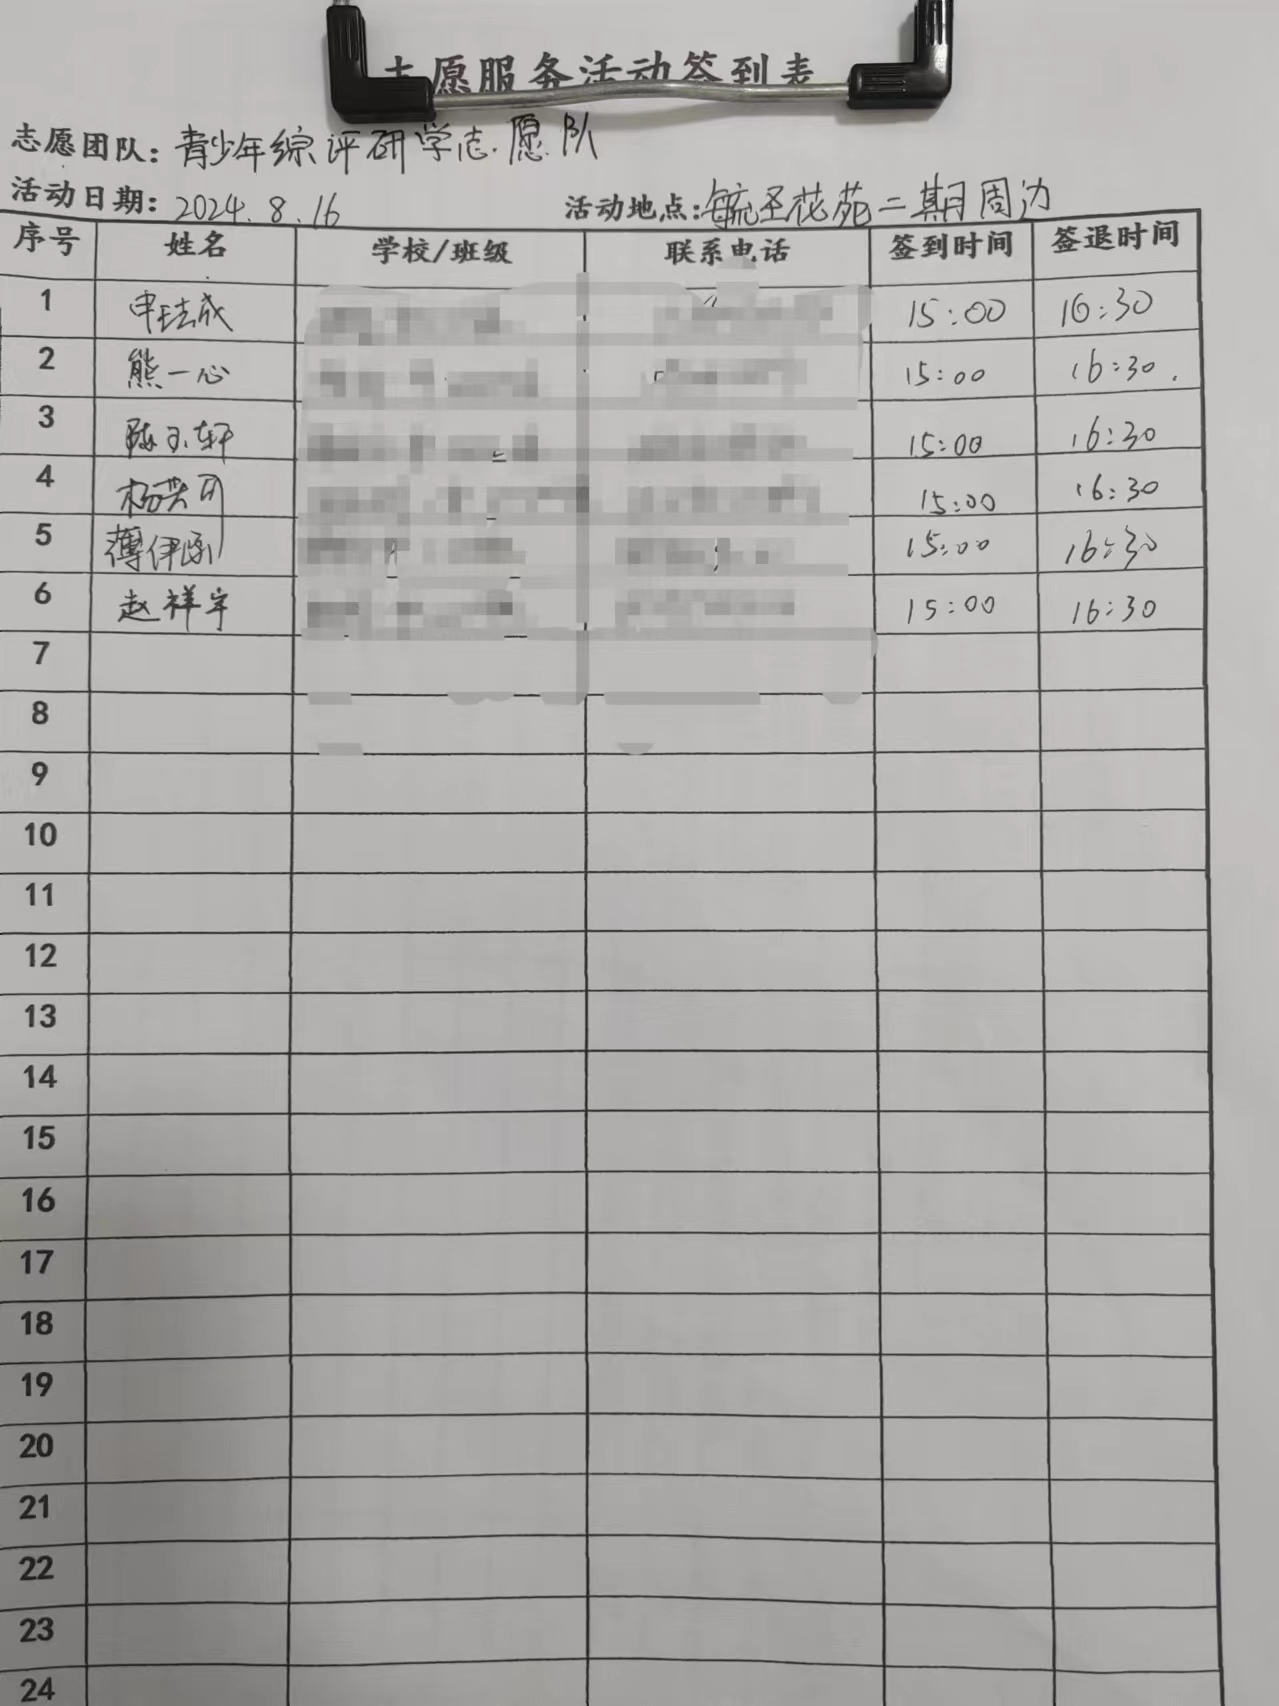 志愿服务活动签到表
志愿团队：青少年综评研学志愿队
活动日期：2024.8.16 活动地点：毓圣花苑二期周边
序号 姓名 学校/班级 联系电话 签到时间 签退时间
1 申喆成 15:00 16:30
2 熊一心 15:00 16:30.
3 陈玉轩 15:00 16:30
4 15:00 16:30
5 薄伊涵 15:00 16:30
6 赵祥宇 15:00 16:30
7
8
9
10
11
12
13
14
15
16
17
18
19
20
21
22
23
24